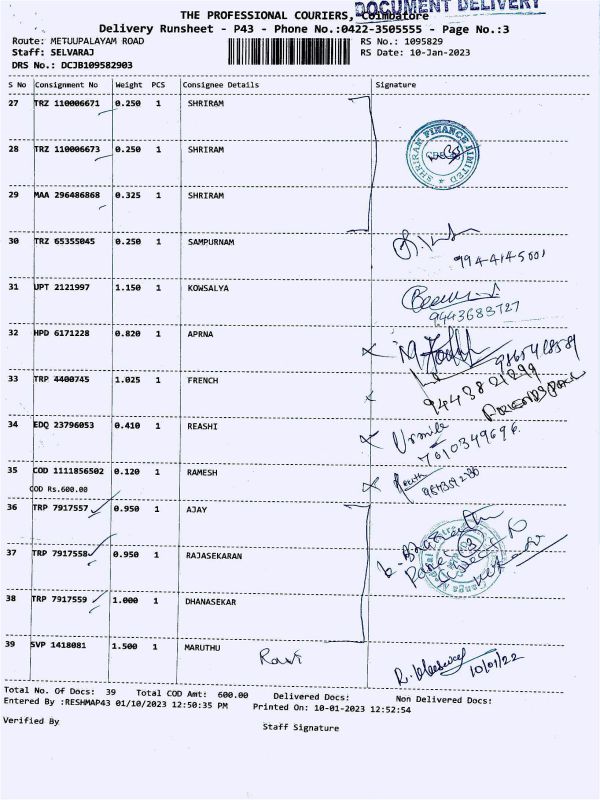 DOCUMENT DELIVERY
THE PROFESSIONAL COURIERS, Coimbatore
Delivery Runsheet - P43 - Phone No.:0422-3505555 - Page No.:3
Route: METUUPALAYAM ROAD RS No.: 1095829
Staff: SELVARAJ RS Date: 10-Jan-2023
DRS No.: DCJB109582903
S No Consignment No Weight PCS Consignee Details Signature
27 TRZ 110006671 0.250 1 SHRIRAM
28 TRZ 110006673 0.250 1 SHRIRAM
SHRIRAM FINANCE LIMITED
29 MAA 296486868 0.325 1 SHRIRAM
30 TRZ 65355045 0.250 1 SAMPURNAM
9944145001
31 UPT 2121997 1.150 1 KOWSALYA
9443683727
32 HPD 6171228 0.820 1 APRNA
33 TRP 4400745 1.025 1 FRENCH
9443821299
34 EDQ 23796053 0.410 1 REASHI
Urmila
7010349696
35 COD 1111856502 0.120 1 RAMESH
COD Rs.600.00
36 TRP 7917557 0.950 1 AJAY
37 TRP 7917558 0.950 1 RAJASEKARAN
38 TRP 7917559 1.000 1 DHANASEKAR
39 SVP 1418081 1.500 1 MARUTHU
Ravi
10/01/22
Total No. Of Docs: 39 Total COD Amt: 600.00 Delivered Docs: Non Delivered Docs:
Entered By :RESHMAP43 01/10/2023 12:50:35 PM Printed On: 10-01-2023 12:52:54
Verified By Staff Signature